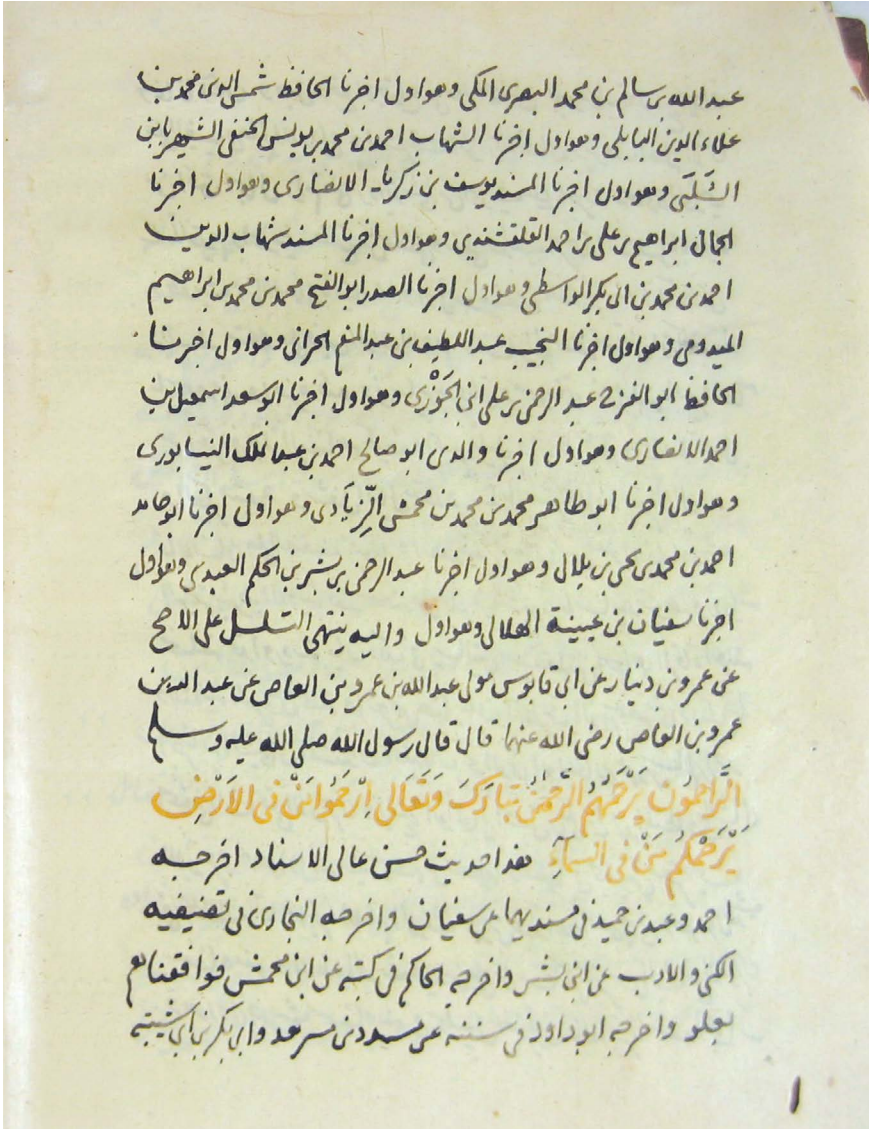 عبد الله بن سالم بن محمد البصرى المكى وهو اول اخبرنا الحافظ شمس الدين محمد بن
علاء الدين البابلى وهو اول اخبرنا الشهاب احمد بن محمد بن يونس الحنفى الشهير بابن
الشَّلَبى وهو اول اخبرنا المسند يوسف بن زكريا الانصارى وهو اول اخبرنا
الجمالى ابراهيم بن على بن احمد القلقشندى وهو اول اخبرنا المسند شهاب الدين
احمد بن محمد بن ابى بكر الواسطى وهو اول اخبرنا الصدر ابو الفتح محمد بن محمد بن ابراهيم
الميدومى وهو اول اخبرنا النجيب عبد اللطيف بن عبد المنعم الحرانى وهو اول اخبرنا
الحافظ ابو الفرج عبد الرحمن بن على ابن الجَوْزى وهو اول اخبرنا ابو سعد اسمعيل بن
احمد الانصارى وهو اول اخبرنا والدى ابو صالح احمد بن عبد الملك النيسابورى
وهو اول اخبرنا ابو طاهر محمد بن محمد بن محمش الزِّيَادى وهو اول اخبرنا ابو حامد
احمد بن محمد بن يحيى بن بلال وهو اول اخبرنا عبد الرحمن بن بشر بن الحكم العبدى وهو اول
اخبرنا سفيان بن عيينة الهلالى وهو اول واليه ينتهى التسلسل على الاصح
عن عمرو بن دينار عن ابى قابوس مولى عبد الله بن عمرو بن العاص عن عبد الله بن
عمرو بن العاص رضى الله عنهما قال قال رسول الله صلى الله عليه وسلم
الرَّاحمُون يَرْحَمُهُم الرَّحْمٰنُ تبَارَكَ وَتَعَالى اِرْحَمُوا مَنْ فى الاَرْضِ
يَرْحَمْكُم مَنْ فى السمآءِ هذا حديث حسن عالى الاسناد اخرجه
احمد وعبد بن حميد فى مسنديهما عن سفيان واخرجه البخارى فى تصنيفيه
الكنى والادب عن ابن بشر واخرجه الحاكم فى كتبه عن ابن محمش فوافقناهم
بعلو واخرجه ابو داود فى سننه عن مسدد بن مسرهد وابى بكر بن ابى شيبه
١